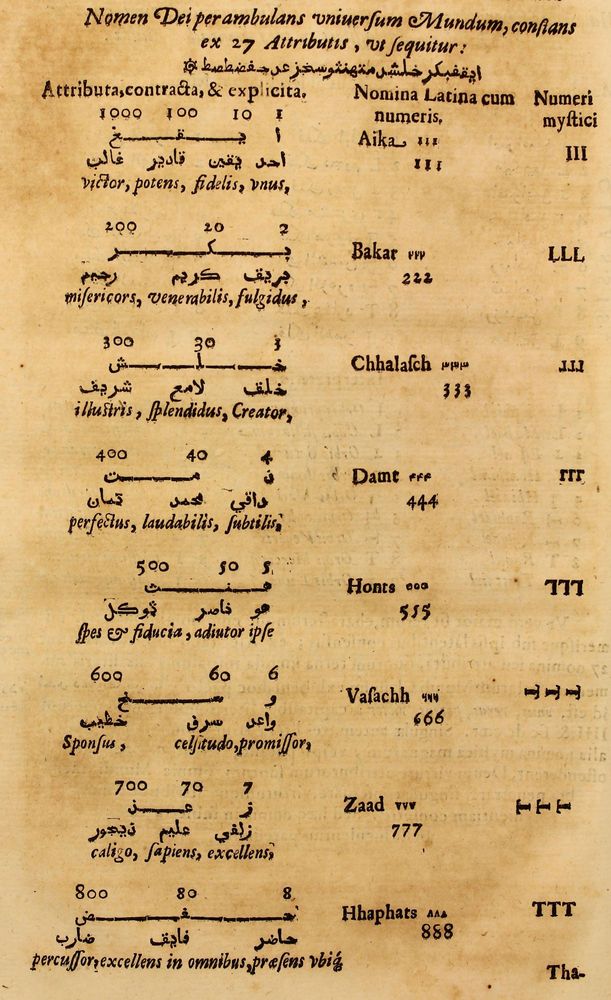 Nomen Dei perambulans vniuersum Mundum, constans
ex 27 Attributis, vt sequitur:
Attributa, contracta, & explicita.
Nomina Latina cum
numeris.
Numeri
mystici
1000 100 10 1
ا يـقـغ
احد يقين قادير غالب
victor, potens, fidelis, vnus,
Aika ١١١
111
III
200 20 2
بـكـر
بريق كريم رحيم
misericors, venerabilis, fulgidus,
Bakar ٢٢٢
222
LLL
300 30 3
خـلـش
خلق لامع شريف
illustris, splendidus, Creator,
Chhalasch ٣٣٣
333
400 40 4
مـت
داقي محمد تمان
perfectus, laudabilis, subtilis,
Damt ۴۴۴
444
500 50 5
هـنـث
هو ناصر توكل
spes & fiducia, adiutor ipse
Honts
555
600 60 6
و سـخ
واعد سرق خطيب
Sponsus, celsitudo, promissor,
Vasachh
666
700 70 7
ز عـذ
زلفي عليم ديجور
caligo, sapiens, excellens,
Zaad ٧٧٧
777
800 80 8
حـفـض
حاضر فايق ضارب
percussor, excellens in omnibus, præsens vbiq́
Hhaphats ٨٨٨
888
TTT
Tha-